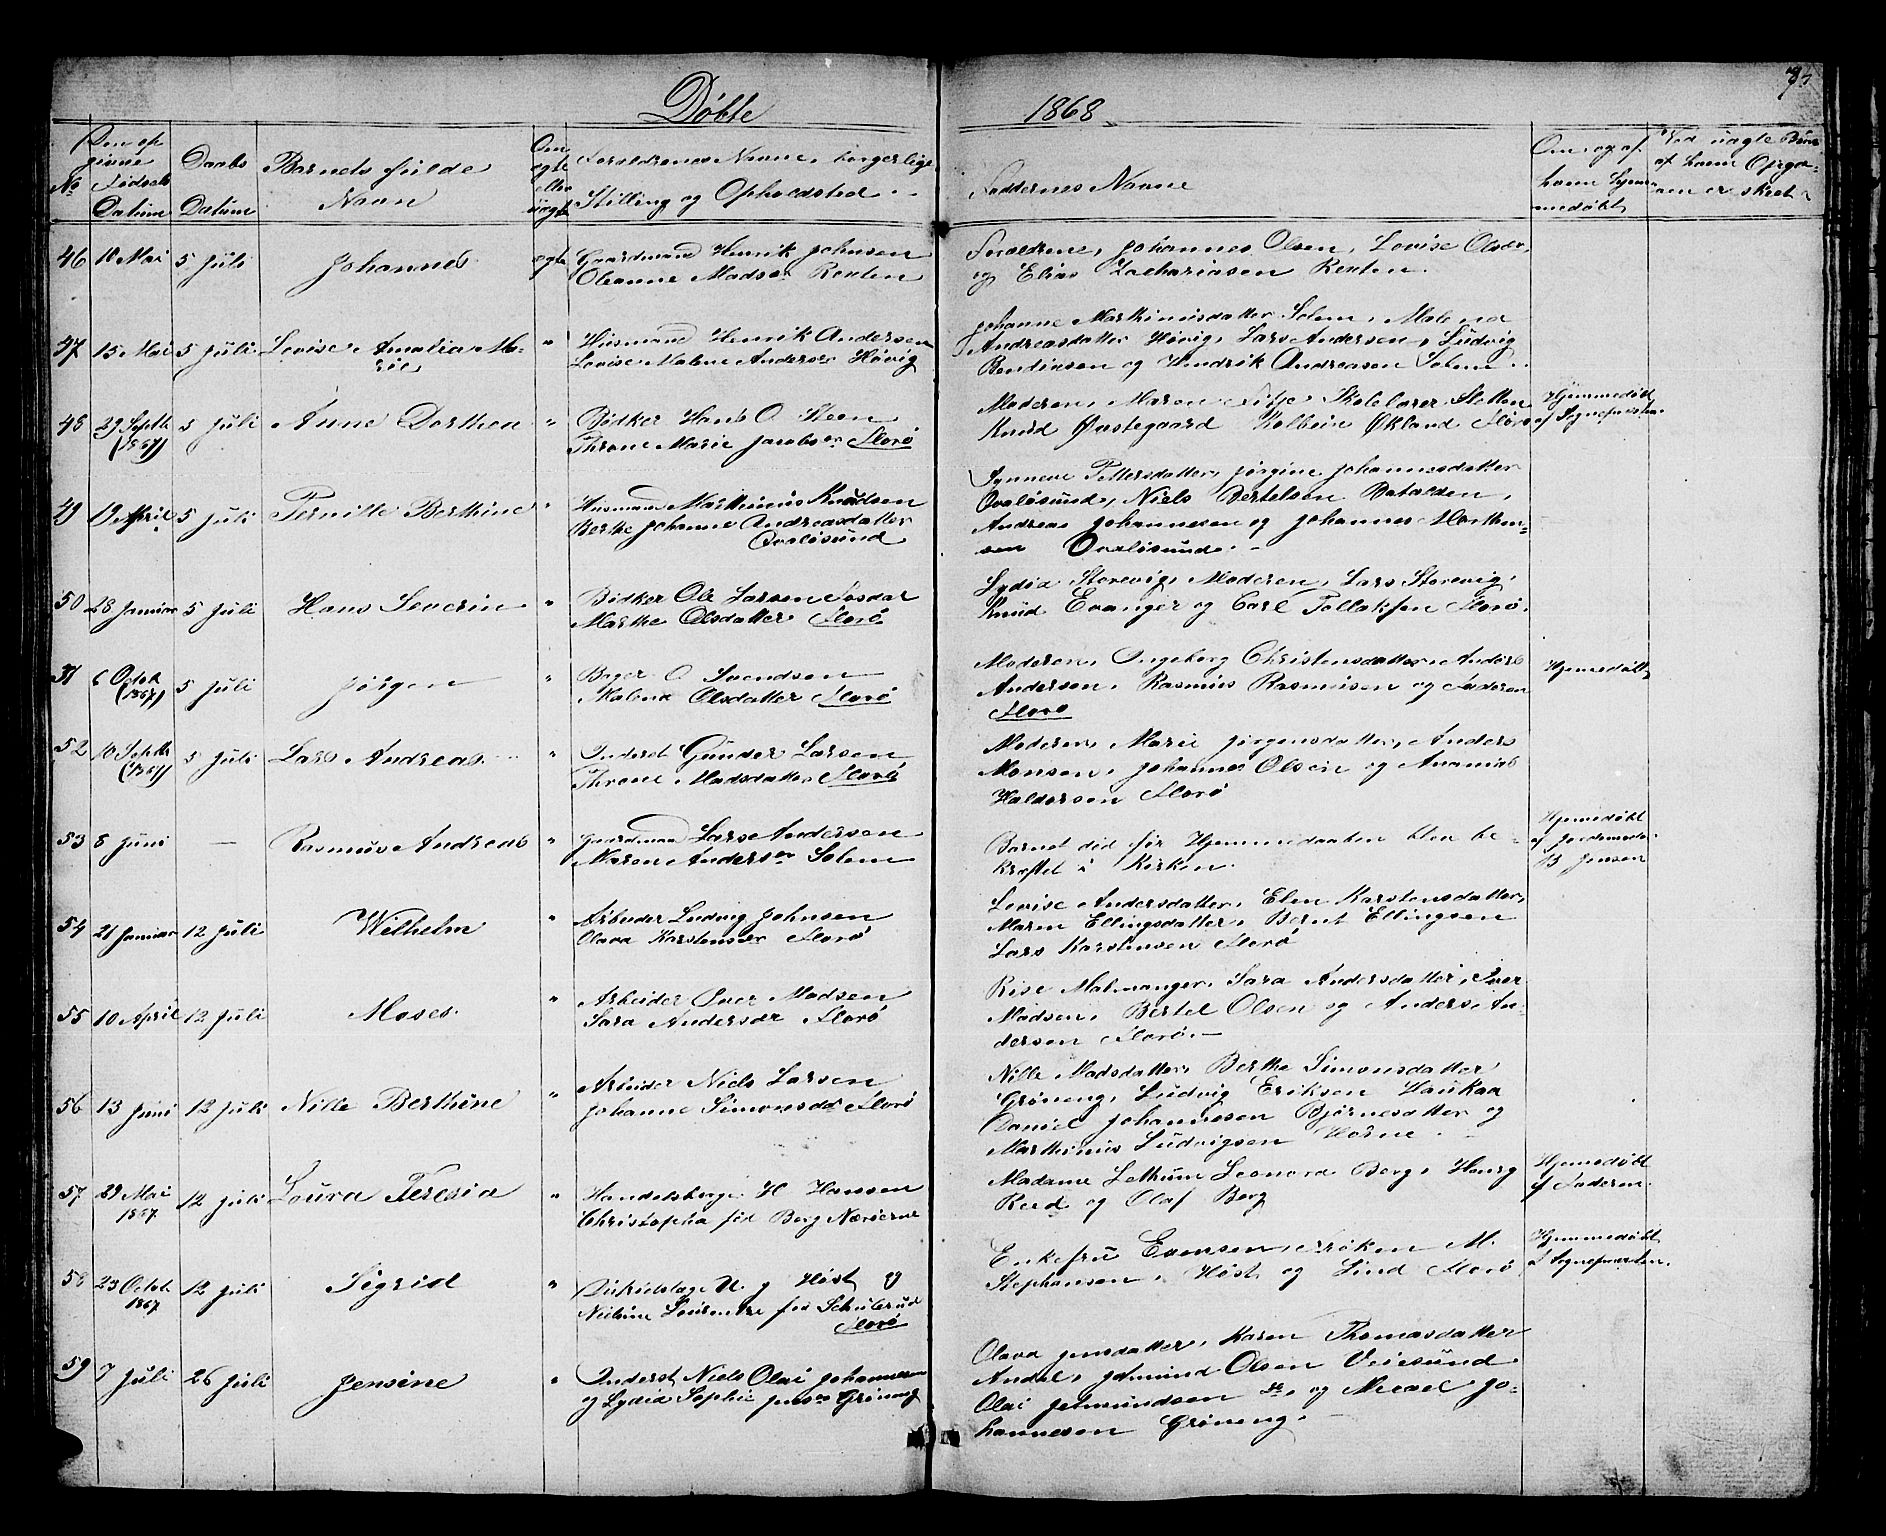 Døbte 1868
No
Den op
givne
Fødsels
Datum
Daabs
Datum
Barnets fulde
Navn
Om
ægte
eller
uægte
Forældrenes Navne, borgerlige
Stilling og Opholdsted
Faddernes Navne
Om og af
hvem hjem-
medøbt
Ved uægte Børn
46 10 Mai 5 Juli Johannes ægte Gaardmand Henrik Johnsen
Oleanne Madsdr Renten
Forældrene, Johannes Olsen, Lovise Olsdr,
og Elias Zachariasen Renten.
47 15 Mai 5 Juli Lovise Amalia Ma-
rie
" Husmand Henrik Andersen
Lovise Malene Andersdr Høvig
Johanne Marthinusdatter Solem, Malena
Andreasdatter Høvig, Lars Andersen, Ludvig
Bendixsen og Hendrik Andreasen Solem.
48 29 Septb
(1867)
5 Juli Anne Dorthea " Bødker Hans O Steen
Throne Marie Jacobsdr Florø
Moderen, Maren Skolelærer Sletten
Knud Østegaard Kolbein Økland Florø
Hjemmedøbt
af Sognepresten
49 19 April 5 Juli Pernille Berthine " Husmand Marthinus Knudsen
Berthe Johanne Andreasdatter
Ovaløsund
Synneve Pettersdatter, Jørgine Johannesdatter
Ovaløsund, Niels Bertelsen Batalden,
Andreas Johannesen og Johannes Morthen-
sen Ovaløsund.
50 28 Januar 5 Juli Hans Severin " Bødker Ole Larsen
Marthe Olsdatter Florø
Lydia Storevig, Moderen, Lars Storevig,
Knud Evanger og Carl Tollaksen Florø.
51 6 Octob
(1867)
5 Juli Jørgen " O Svendsen
Malena Olsdatter Florø
Moderen, Ingeborg Christensdatter, Anders
Andersen, Rasmus Rasmusen og Faderen
Florø
Hjemmedøbt
52 10 Septb
(1867)
5 Juli Lars Andreas " Inderst Gunder Larsen
Throne Madsdatter Florø
Moderen, Marie Jørgensdatter, Anders
Monsen, Johannes Olsen og Ananias
Haldorsen Florø
53 8 Juni — Rasmus Andreas " Gaardmand Lars Andersen
Maren Andersdr Solem
Barnet død før Hjemmedaaben blev be-
kræftet i Kirken.
Hjemmedøbt
af Jordemoder
B Jensen
54 21 Januar 12 Juli Wilhelm " Arbeider Ludvig Johnsen
Olava Karstensdr Florø
Lovise Andersdatter, Elen Karstensdatter,
Maren Ellingsdatter, Bernt Ellingsen
Lars Karstensen Florø
55 10 April 12 Juli Moses " Arbeider Iver Madsen
Sara Andersdr Florø
Rise Malmanger, Sara Andersdatter, Iver
Madsen, Bertel Olsen og Anders An-
dersen Florø.
56 13 Juni 12 Juli Nille Berthine " Arbeider Niels Larsen
Johanne Simonsdr Florø
Nille Madsdatter, Berthe Simonsdatter
Grøneng, Ludvig Eriksen Haukaa
Daniel Johannesen Bjørnesatter og
Marthinus Ludvigsen Horne.
57 29 Mai
1867
12 Juli Laura Teresia " Handelsborger H Hanssen
Christopha fød Berg Nærøerne
Madame Lethum Leonora Berg, Henry
Reed og Olaf Berg
Hjemmedøbt
af Faderen.
58 23 Octob
1867
12 Juli Sigrid " Distriktslæge N. J Høst og
Nielsine Laurentze fød Schulerud
Florø
Enkefru Evensen, Frøken M.
Stephansen, Høst og Lind Florø
Hjemmedøbt
af Sognepresten.
59 7 Juli 26 Juli Jensine " Inderst Niels Olai Johannessen
og Lydia Sophie Jensdr Grøneng
Olava Jensdatter, Karen Thomasdatter
Andal, Jetmund Olsen Veiesund
Olai Jetmundsen do, og Mecael Jo-
hannesen Grøneng.